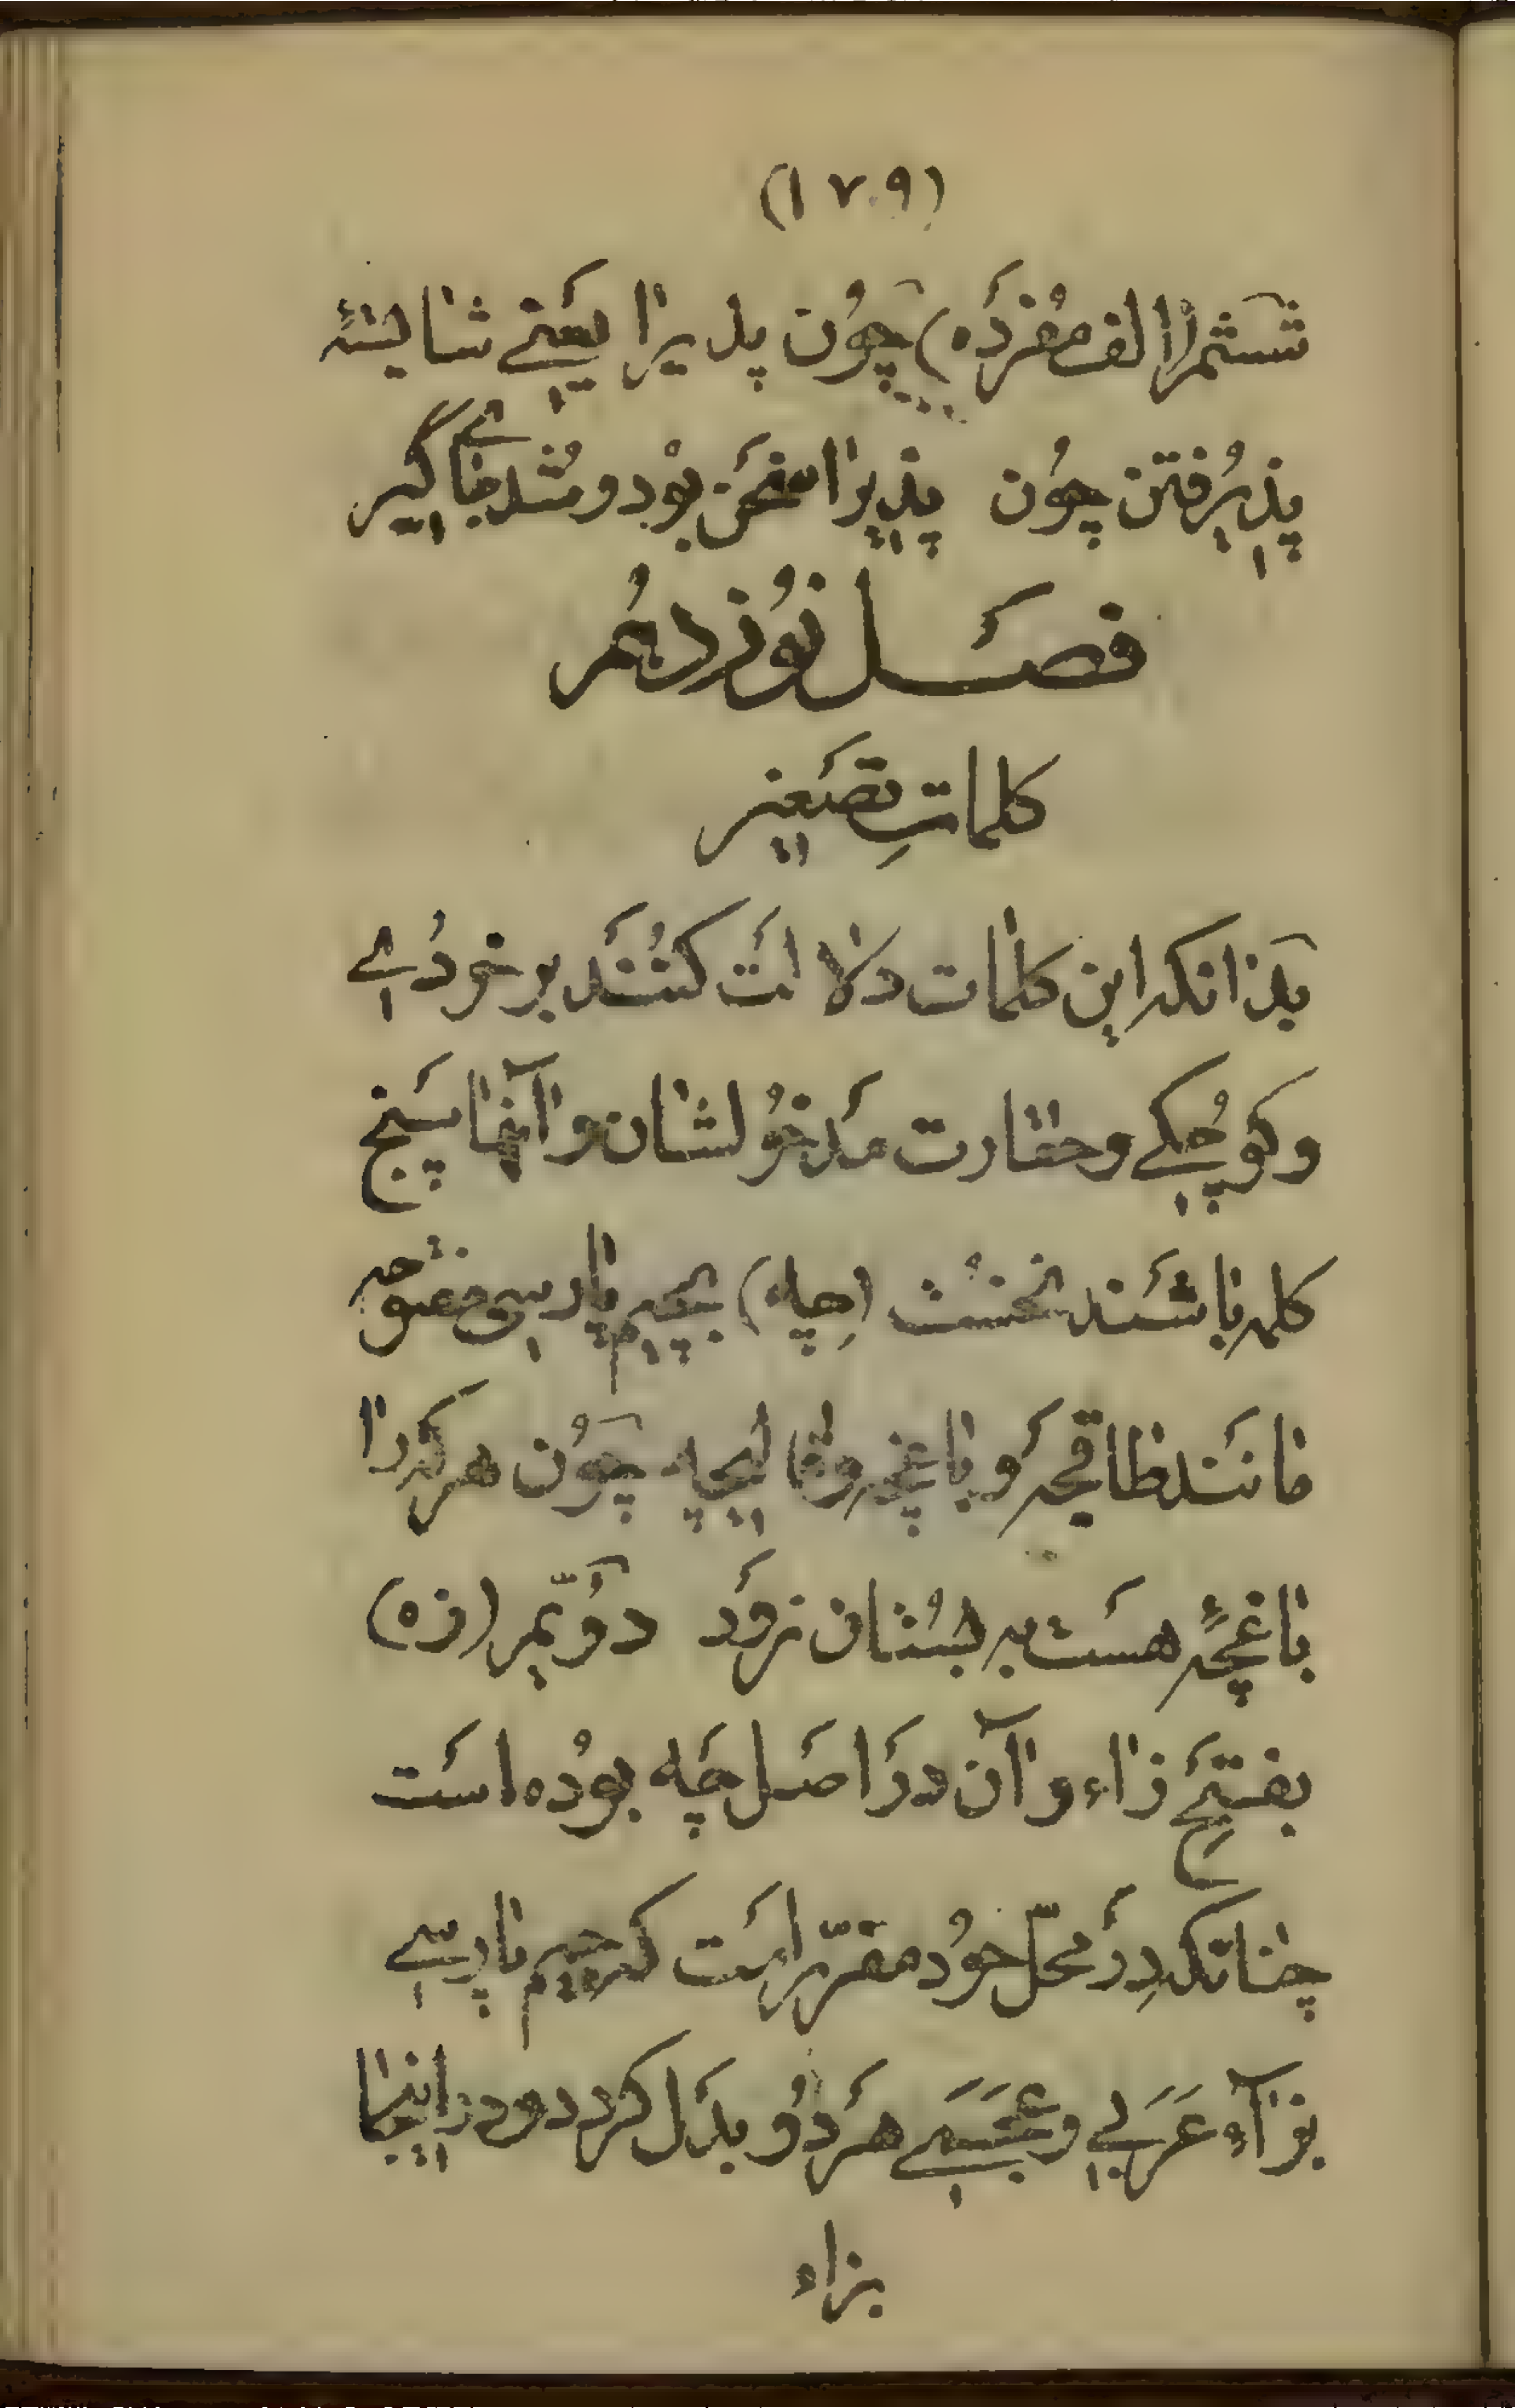 (١٧٩)
شَشُم (الف مُفْرَدَه) چَوُن پذیرا یَعنے شایستهٔ
پذیرُفتن چوُن پذیرا سخَن بوُد و شُد جایگیر
فصَل نوُزدهُم
کلماتِ تصَغیر
بَدانکه این کلمات دلالَت کنُنَد بر خوردُے
و کوچُکے و حقارت مَدخوُلشان و آنها پَنج
کلمه باشَند نخسُت (چه) بجیم پارسی مفتوحه
مانَند طاقچه و باغچه و قالیچه چَوُن هر کَه را
باغچهٔ هسَت به بسُتان نروَد دوُیّم (زه)
بفتحَ زاء و آن دَر اصَل چَه بوُده اسَت
چنانکه دَر محلّ خوُد مقرّر اسَت که جیم پارسے
بزآءِ عَرَبے و عَجَمَے هَر دوُ بدَل کردد و در اینجا
بزاء